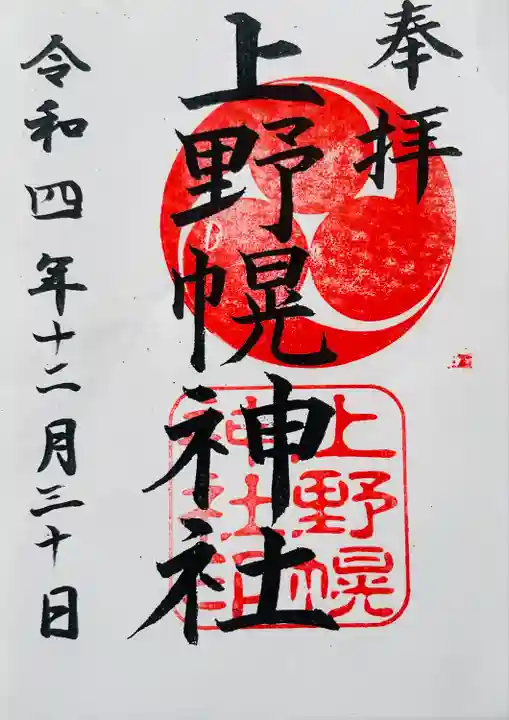 奉拝
上野幌神社
上野幌
神社印
令和四年十二月三十日